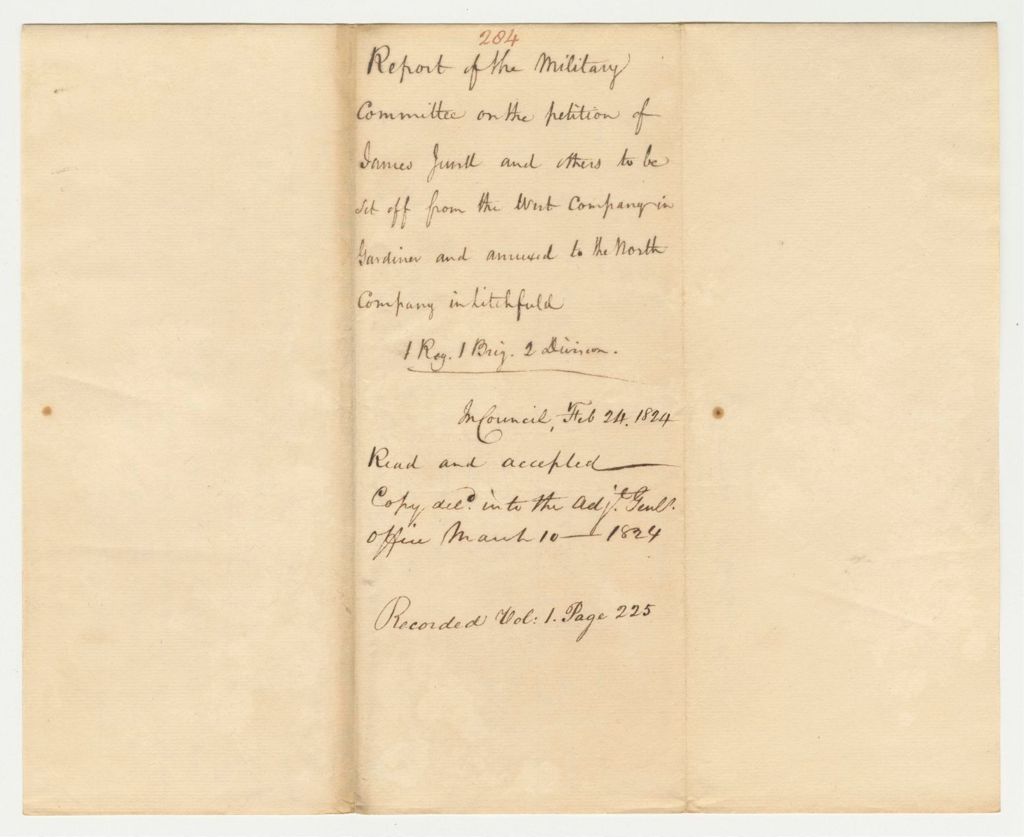 204
Report of the Military
Committee on the petition of
James and others to be
set off from the West Company in
Gardiner and annexed to the North
Company in Litchfield
1 Reg. 1 Brig. 2 Division.
In Council, Feb 24. 1824
Read and accepted
Copy deld. into the Adjt. Genls.
office March 10 — 1824
Recorded Vol: 1. Page 225